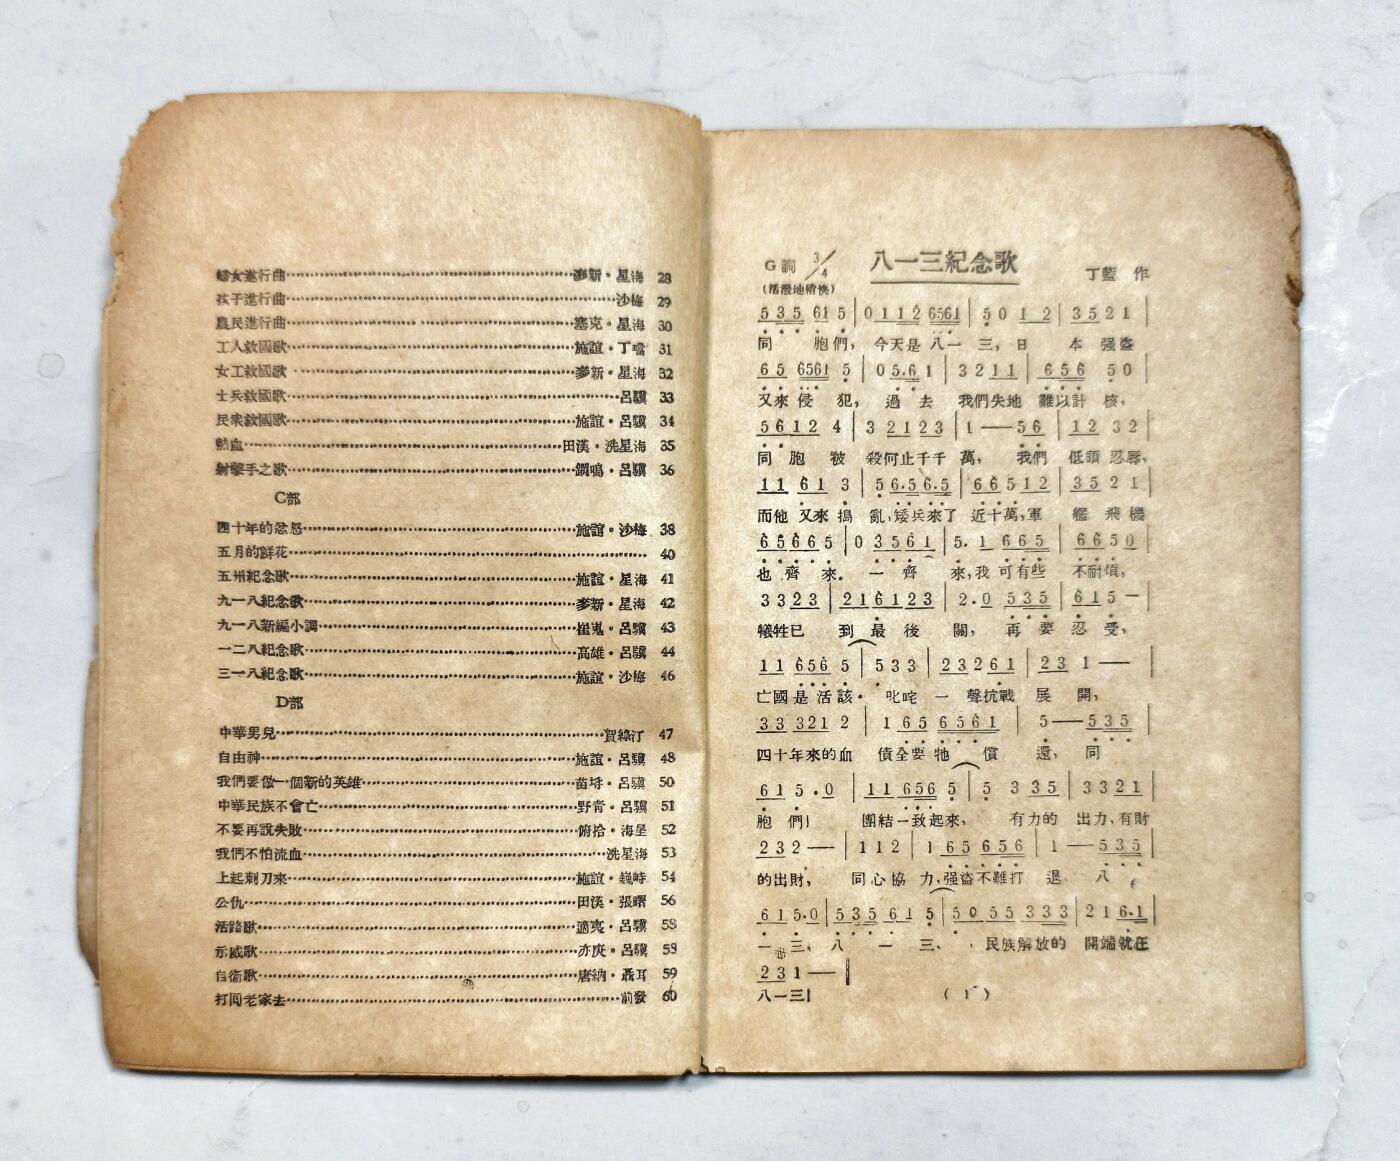 婦女進行曲 麥新・星海 28
孩子進行曲 沙梅 29
農民進行曲 塞克・星海 30
工人救國歌 施誼・丁 31
女工救國歌 麥新・星海 32
士兵救國歌 呂驥 33
民衆救國歌 施誼・呂驥 34
熱血 田漢・洗星海 35
射擊手之歌 鋼鳴・呂驥 36
C部
四十年的忿怒 施誼・沙梅 38
五月的鮮花 40
五卅紀念歌 施誼・星海 41
九一八紀念歌 麥新・星海 42
九一八新編小調 崔嵬・呂驥 43
一二八紀念歌 高雄・呂驥 44
三一八紀念歌 施誼・沙梅 46
D部
中華男兒 賀綠汀 47
自由神 施誼・呂驥 48
我們要做一個新的英雄 苗埒・呂驥 50
中華民族不會亡 野青・呂驥 51
不要再說失敗 俯拾・海星 52
我們不怕流血 洗星海 53
上起刺刀來 施誼・巍峙 54
公仇 田漢・張曙 56
活路歌 適夷・呂驥 58
示威歌 亦庚・呂驥 58
自衞歌 唐納・聶耳 59
打囘老家去 前發 60
八一三紀念歌
G調 3/4 丁藍 作
(活潑地稍快)
5 3 5 6 1 5 | 0 1 1 2 6561 | 5 0 1 2 | 3 5 2 1 |
同 胞們, 今天是 八一 三, 日 本 强盜
6 5 6561 5 | 0 5.6 1 | 3 2 1 1 | 6 5 6 5 0 |
又來 侵 犯, 過 去 我們失地 難以計 核,
5 6 1 2 4 | 3 2 1 2 3 | 1 — 5 6 | 1 2 3 2 |
同 胞 被 殺何止千千 萬, 我們 低頭 忍辱,
1 1 6 1 3 | 5 6.5 6.5 | 6 6 5 1 2 | 3 5 2 1 |
而他 又來 搗 亂,矮兵來了 近十萬,軍 艦 飛 機
6 5 6 6 5 | 0 3 5 6 1 | 5. 1 6 6 5 | 6 6 5 0 |
也 齊 來. 一 齊 來,我 可有些 不耐煩,
3 3 2 3 | 2 1 6 1 2 3 | 2 . 0 5 3 5 | 6 1 5 — |
犠牲已 到 最 後 關, 再 要 忍 受,
1 1 6 5 6 5 | 5 3 3 | 2 3 2 6 1 | 2 3 1 — |
亡國是 活該・ 叱咤 一 聲抗戰 展 開,
3 3 3 2 1 2 | 1 6 5 6 5 6 1 | 5 — 5 3 5 |
四十年來的血 債全要 牠 償 還, 同
6 1 5 . 0 | 1 1 6 5 6 5 | 5 3 3 5 | 3 3 2 1 |
胞 們! 團結一致起來, 有力的 出力,有財
2 3 2 — | 1 1 2 | 1 6 5 6 5 6 | 1 — 5 3 5 |
的出財, 同心協 力,强盜不難打 退 八
6 1 5.0 | 5 3 5 6 1 5 | 5 0 5 5 3 3 3 | 2 1 6.1 |
一 三, 八 一 三、 民族解放的 開端就在
2 3 1 — |
八一三!
( 1 )